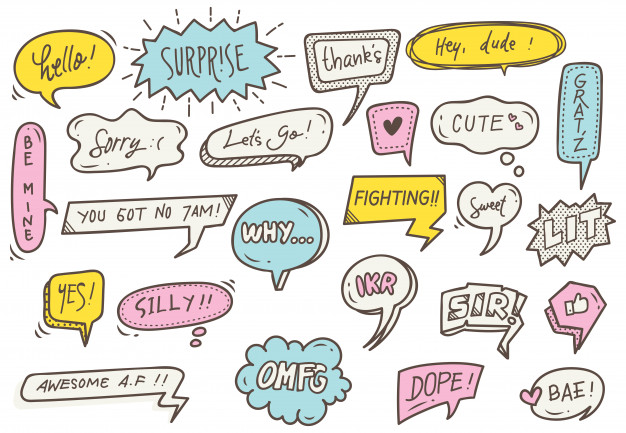 hello!
SURPRISE
thank's
Hey, dude !
GRATZ
BE MINE
Sorry :(
Let's Go!
CUTE
YOU GOT NO JAM!
WHY...
FIGHTING!!
Sweet
LIT
YES!
SILLY!!
IKR
SIR!
AWESOME A.F !!
OMFG
DOPE!
BAE!